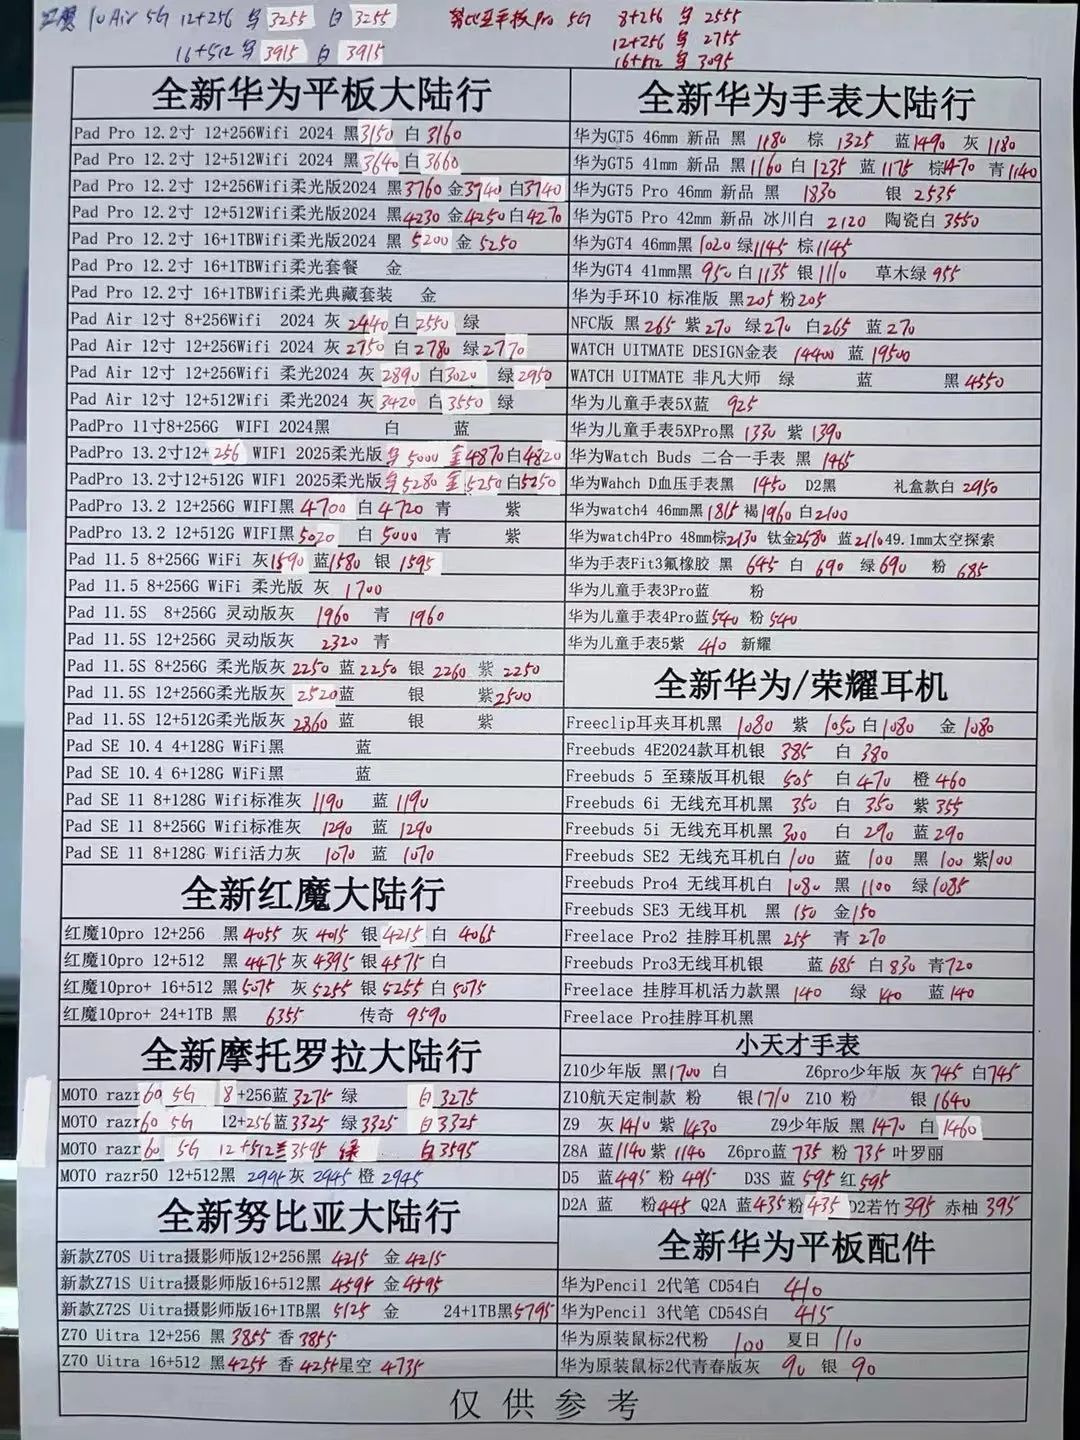 红魔 10 Air 5G 12+256 黑 3255 白 3255
16+512 黑 3915 白 3915
努比亚平板Pro 5G 8+256 黑 2555
12+256 黑 2755
16+512 黑 3095
全新华为平板大陆行
Pad Pro 12.2寸 12+256Wifi 2024 黑3150 白 3160
Pad Pro 12.2寸 12+512Wifi 2024 黑3640 白 3660
Pad Pro 12.2寸 12+256Wifi柔光版2024 黑3760 金3740 白3740
Pad Pro 12.2寸 12+512Wifi柔光版2024 黑4230 金4250 白4270
Pad Pro 12.2寸 16+1TBWifi柔光版2024 黑 5200 金 5250
Pad Pro 12.2寸 16+1TBWifi柔光套餐 金
Pad Pro 12.2寸 16+1TBWifi柔光典藏套装 金
Pad Air 12寸 8+256Wifi 2024 灰 2440 白 2550 绿
Pad Air 12寸 12+256Wifi 2024 灰 2750 白 2780 绿2770
Pad Air 12寸 12+256Wifi 柔光2024 灰 2890 白3020 绿2950
Pad Air 12寸 12+512Wifi 柔光2024 灰 3420 白 3550 绿
PadPro 11寸8+256G WIFI 2024黑 白 蓝
PadPro 13.2寸12+256 WIFI 2025柔光版黑 5000 金4870白4820
PadPro 13.2寸12+512G WIFI 2025柔光版黑5280 金 5250 白5250
PadPro 13.2 12+256G WIFI黑 4700 白 4720 青 紫
PadPro 13.2 12+512G WIFI黑 5020 白 5000 青 紫
Pad 11.5 8+256G WiFi 灰1590 蓝1580 银 1595
Pad 11.5 8+256G WiFi 柔光版 灰 1700
Pad 11.5S 8+256G 灵动版灰 1960 青 1960
Pad 11.5S 12+256G 灵动版灰 2320 青
Pad 11.5S 8+256G 柔光版灰 2250 蓝 2250 银 2260 紫 2250
Pad 11.5S 12+256G柔光版灰 2520蓝 银 紫2500
Pad 11.5S 12+512G柔光版灰 2860 蓝 银 紫
Pad SE 10.4 4+128G WiFi黑 蓝
Pad SE 10.4 6+128G WiFi黑 蓝
Pad SE 11 8+128G Wifi标准灰 1190 蓝 1190
Pad SE 11 8+256G Wifi标准灰 1290 蓝 1290
Pad SE 11 8+128G Wifi活力灰 1070 蓝 1070
全新红魔大陆行
红魔10pro 12+256 黑 4055 灰 4015 银 4215 白 4065
红魔10pro 12+512 黑 4475 灰 4395 银4575 白
红魔10pro+ 16+512 黑5075 灰 5255 银 5255 白 5075
红魔10pro+ 24+1TB 黑 6355 传奇 9590
全新摩托罗拉大陆行
MOTO razr60 5G 8+256蓝 3275 绿 白 3275
MOTO razr60 5G 12+256蓝 3325 绿 3325 白 3325
MOTO razr60 5G 12+512蓝3595 绿 白3595
MOTO razr50 12+512黑 2995 灰 2945 橙 2945
全新努比亚大陆行
新款Z70S Uitra摄影师版12+256黑 4215 金 4215
新款Z71S Uitra摄影师版16+512黑 4595 金4595
新款Z72S Uitra摄影师版16+1TB黑 5125 金 24+1TB黑5795
Z70 Uitra 12+256 黑 3855 香 3855
Z70 Uitra 16+512 黑4255 香 4255星空 4735
全新华为手表大陆行
华为GT5 46mm 新品 黑 1180 棕 1325 蓝1490 灰 1180
华为GT5 41mm 新品 黑1160 白 1235 蓝 1175 棕1470 青1140
华为GT5 Pro 46mm 新品 黑 1830 银 2535
华为GT5 Pro 42mm 新品 冰川白 2120 陶瓷白 3550
华为GT4 46mm黑 1020 绿1145 棕1145
华为GT4 41mm黑 950 白1135 银1110 草木绿 955
华为手环10 标准版 黑205 粉205
NFC版 黑 265 紫 270 绿270 白265 蓝 270
WATCH UITMATE DESIGN金表 14400 蓝 19500
WATCH UITMATE 非凡大师 绿 蓝 黑 4550
华为儿童手表5X蓝 925
华为儿童手表5XPro黑 1330 紫 1390
华为Watch Buds 二合一手表 黑 1465
华为Wahch D血压手表黑 1450 D2黑 礼盒款白 2950
华为watch4 46mm黑1815 褐1960 白2100
华为watch4Pro 48mm棕2130 钛金2580 蓝2110 49.1mm太空探索
华为手表Fit3氟橡胶 黑 645 白 690 绿 690 粉 685
华为儿童手表3Pro蓝 粉
华为儿童手表4Pro蓝540 粉 540
华为儿童手表5紫 410 新耀
全新华为/荣耀耳机
Freeclip耳夹耳机黑 1080 紫 1050 白1080 金 1080
Freebuds 4E2024款耳机银 385 白 380
Freebuds 5 至臻版耳机银 505 白 470 橙 460
Freebuds 6i 无线充耳机黑 350 白 350 紫 355
Freebuds 5i 无线充耳机黑 300 白 290 蓝 290
Freebuds SE2 无线充耳机白 100 蓝 100 黑 100 紫100
Freebuds Pro4 无线耳机白 1080 黑 1100 绿1085
Freebuds SE3 无线耳机 黑 150 金150
Freelace Pro2 挂脖耳机黑 255 青 270
Freebuds Pro3无线耳机银 蓝 685 白830 青720
Freelace 挂脖耳机活力款黑 140 绿 140 蓝 140
Freelace Pro挂脖耳机黑
小天才手表
Z10少年版 黑1700 白 Z6pro少年版 灰 745 白745
Z10航天定制款 粉 银1710 Z10 粉 银 1640
Z9 灰1410 紫 1430 Z9少年版 黑1470 白 1460
Z8A 蓝1140 紫 1140 Z6pro蓝 735 粉 735 叶罗丽
D5 蓝495 粉 495 D3S 蓝 595 红595
D2A 蓝 粉445 Q2A 蓝435粉435 D2若竹 395 赤柚 395
全新华为平板配件
华为Pencil 2代笔 CD54白 410
华为Pencil 3代笔 CD54S白 415
华为原装鼠标2代粉 100 夏日 110
华为原装鼠标2代青春版灰 90 银 90
仅供参考